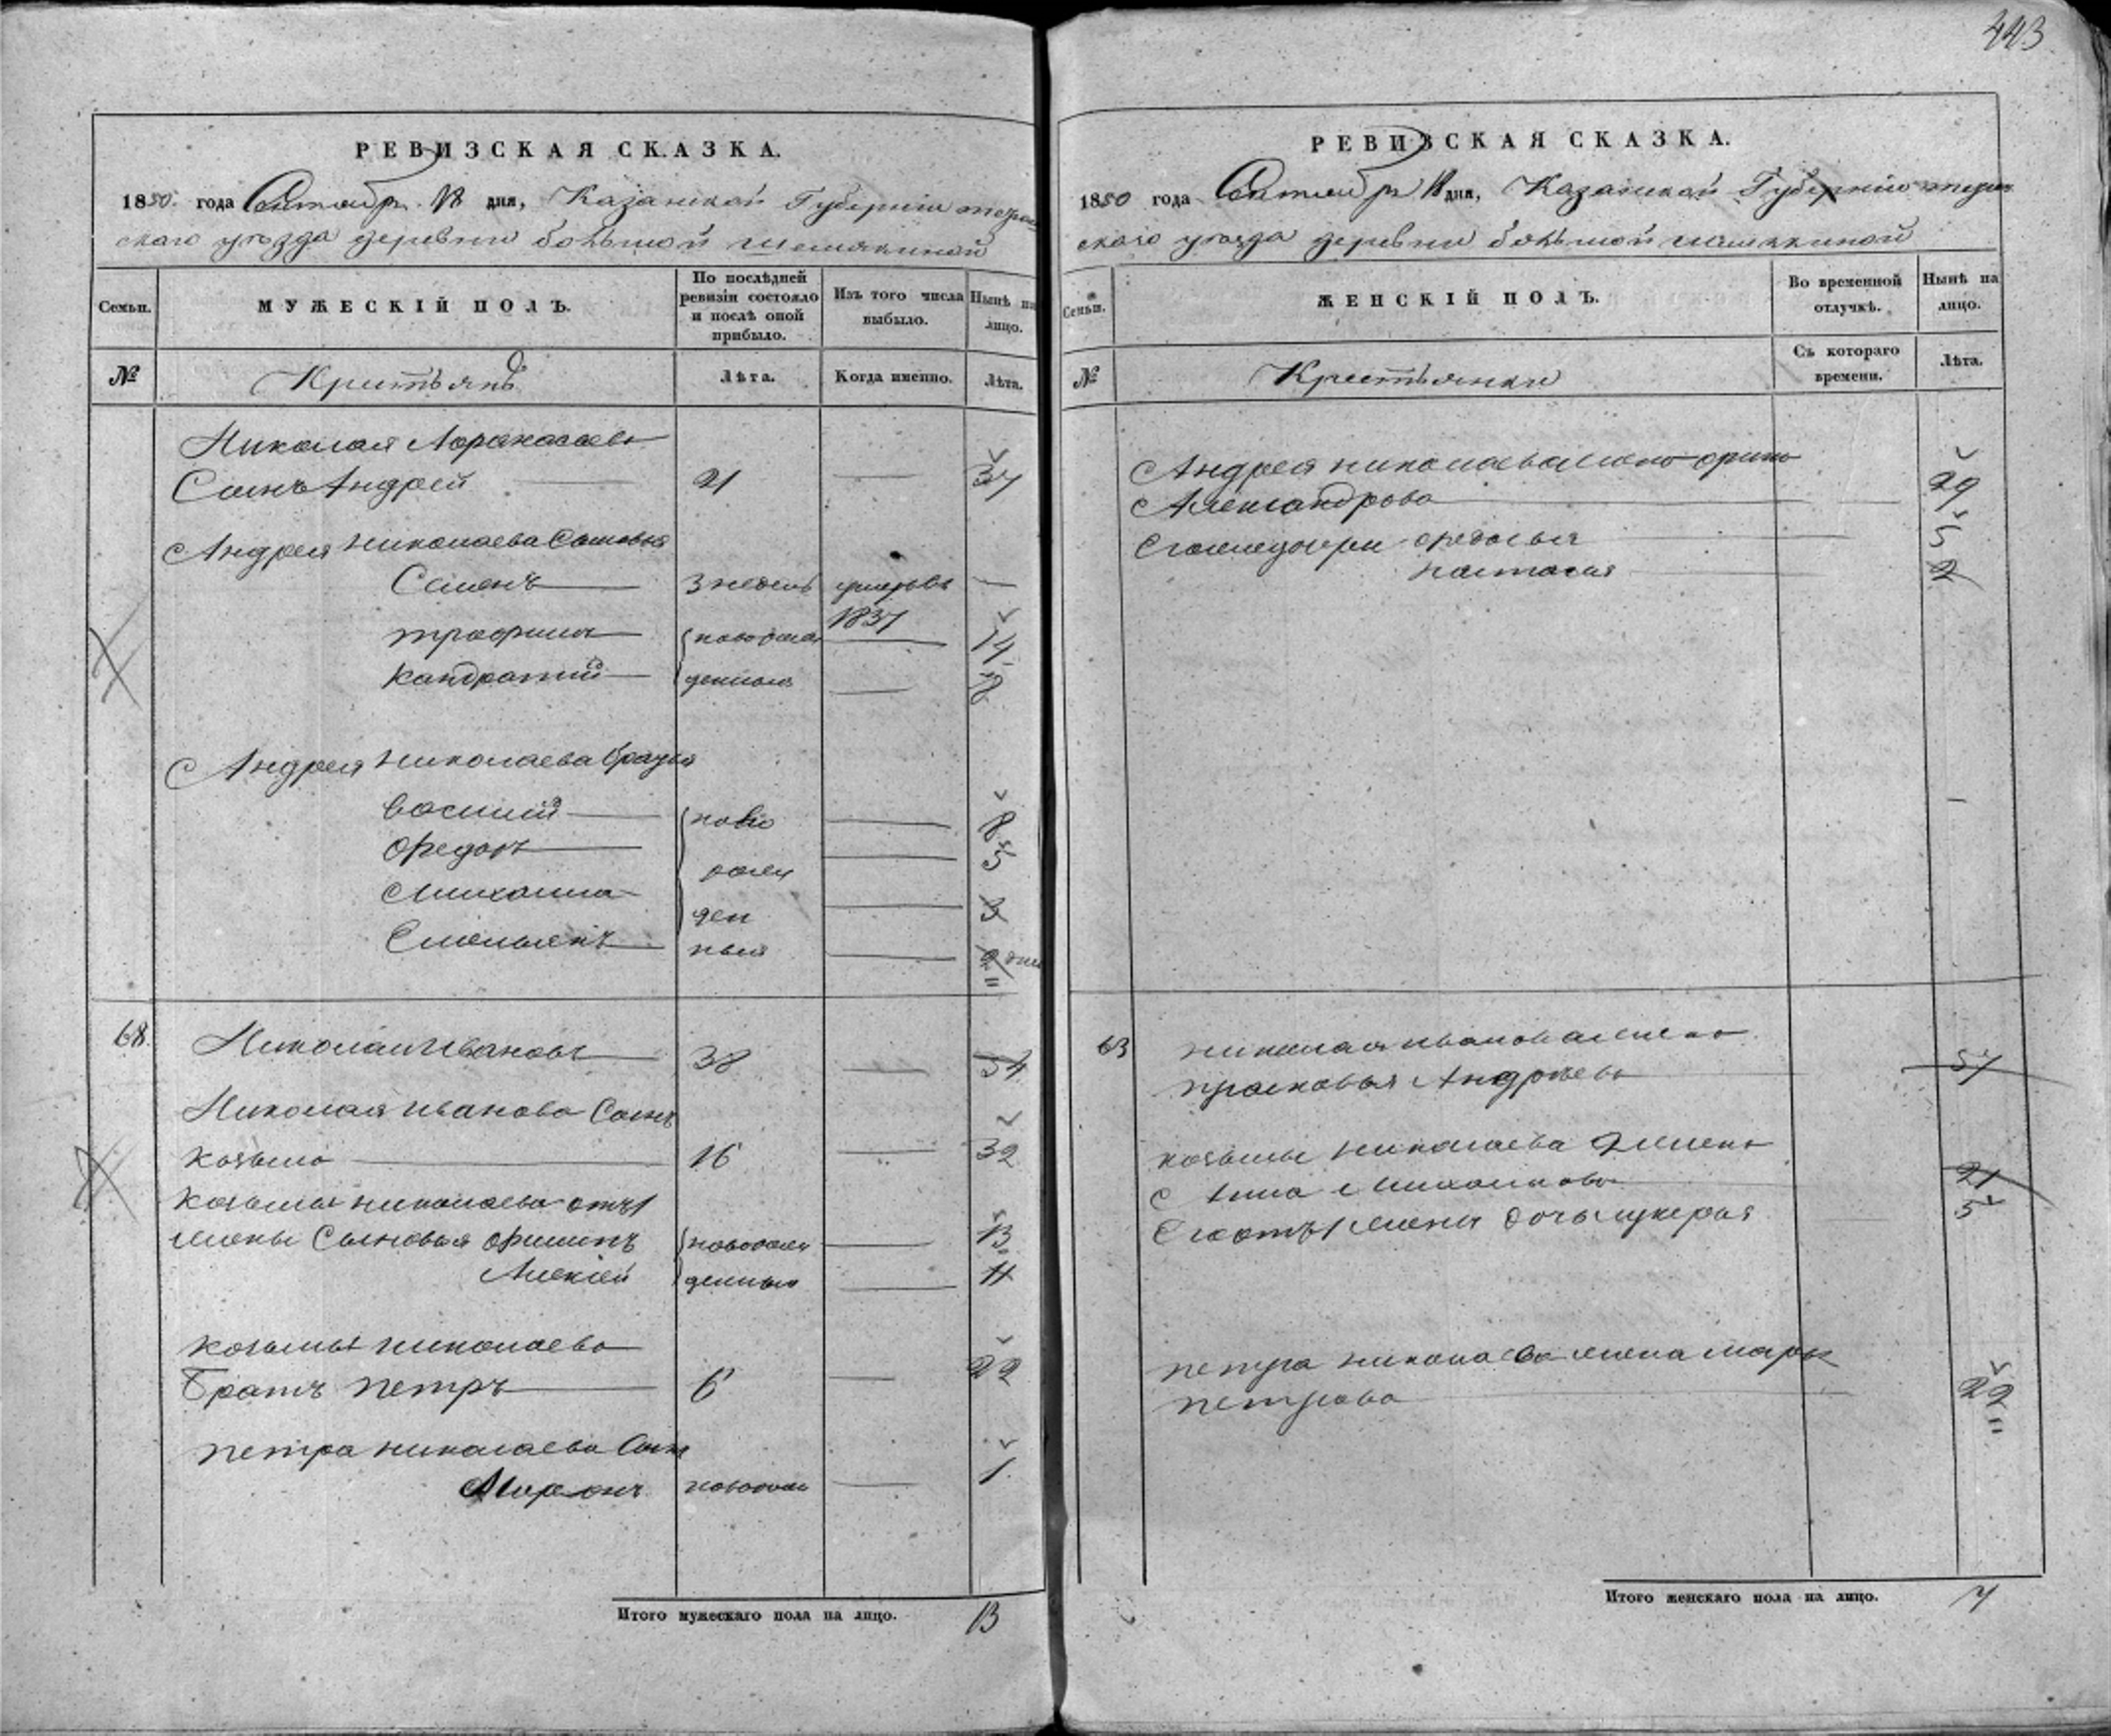 443
РЕВИЗСКАЯ СКАЗКА.
1850. года Октября 18 дня, Казанской Губернии
скаго уѣзда деревни большой шемякиной
Семьи.
МУЖЕСКІЙ ПОЛЪ.
По послѣдней ревизіи состояло и послѣ оной прибыло.
Изъ того числа выбыло.
Нынѣ на лицо.
№
Крестьянъ
Лѣта.
Когда именно.
Лѣта.
Николая
Сынъ Андрей 21 — 37
Андрея николаева Сыновья
Семенъ 3 недель умеръ въ 1837 —
трофимъ новорож — 14
кандратий денныя — 8
Андрея николаева братья
василий ново — 8
Федоръ рож — 5
Михаила ден — 3
Емельянъ ныя — 2 дни
68. Николай Ивановъ 38 — 54
Николая иванова Сынъ
козьма 16 — 32
козьмы николаева отъ 1
жены Сыновья филипъ новорож — 13
Алексей денныя — 11
козьмы николаева
Братъ петръ 6 — 22
петра николаева Сынъ
Миронъ новорож — 1
Итого мужескаго пола на лицо. 13
РЕВИЗСКАЯ СКАЗКА.
1850 года Октября 18 дня, Казанской Губернии
скаго уѣзда деревни большой шемякиной
Семьи.
ЖЕНСКІЙ ПОЛЪ.
Во временной отлучкѣ.
Нынѣ на лицо.
№
Крестьянки
Съ котораго времени.
Лѣта.
Андрея николаева жена орина
Александрова 29
Его же дочери федосья 5
настасия 2
63 николая иванова жена
прасковья Андреева 57
козьмы николаева 2 жена
Анна Михаилова 21
Его отъ 1 жены дочь лукерья 5
петра николаева жена марья
петрова 22
Итого женскаго пола на лицо. 7